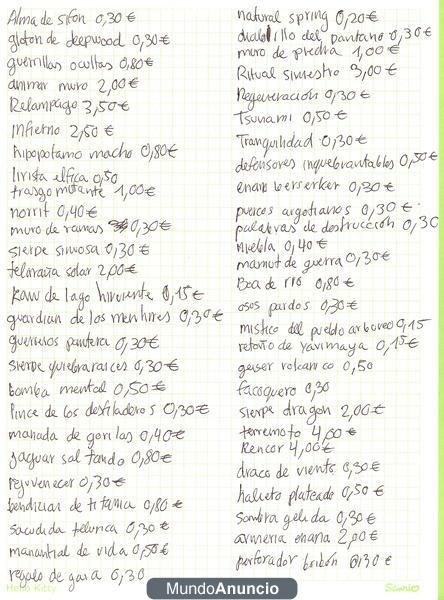 Alma de sifon 0,30€
gloton de deepwood 0,30€
guerrillas ocultas 0,80€
animar muro 2,00€
Relampago 3,50€
infierno 2,50€
hipopotamo macho 0,80€
lirista elfica 0,50
trasgo mutante 1,00€
norrit 0,40€
muro de ramas 0,30€
sierpe sinuosa 0,30€
telaraña solar 2,00€
kavu de lago hirviente 0,15€
guardian de los menhires 0,30€
guerreros pantera 0,30€
sierpe quiebraraices 0,30€
bomba mental 0,50€
lince de los desfiladeros 0,30€
manada de gorilas 0,40€
jaguar saltando 0,80€
rejuvenecer 0,30€
bendicion de titania 0,80€
sacudida telurica 0,30€
manantial de vida 0,50€
regalo de gaia 0,30
Hello Kitty
natural spring 0,20€
diablillo del pantano 0,30€
muro de piedra 1,00€
Ritual siniestro 3,00€
Regeneración 0,30€
Tsunami 0,50€
Tranquilidad 0,30€
defensores inquebrantables 0,50€
enano berserker 0,30€
puercos argotianos 0,30€
palabras de destrucción 0,30
Niebla 0,40€
mamut de guerra 0,30€
Boa de rio 0,80€
osos pardos 0,30€
mistico del pueblo arboreo 0,15
retoño de yavimaya 0,15€
geiser volcanico 0,50
facoquero 0,30
sierpe dragon 2,00€
terremoto 4,00€
Rencor 4,00€
draco de viento 0,30€
halieto plateado 0,50€
Sombra gelida 0,30€
armeria enana 2,00€
perforador bribón 0,30€
Sanrio
MundoAnuncio